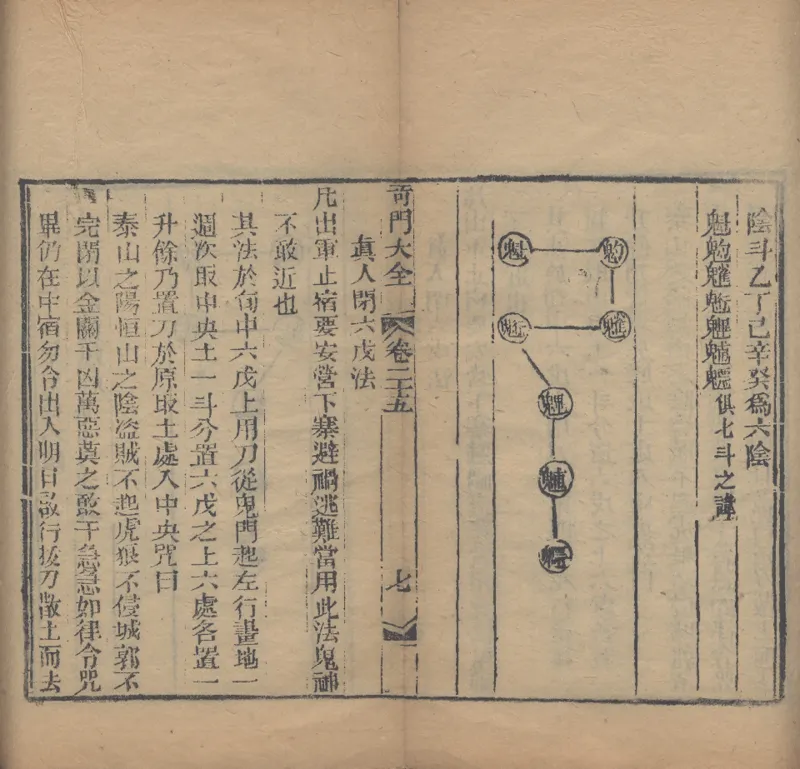 陰斗乙丁己辛癸爲六陰
魁
俱七斗之諱
魁
奇門大全
卷二十五
七
眞人閉六戊法
凡出軍止宿要安營下寨避禍逃難當用此法鬼神
不敢近也
其法於旬中六戊上用刀從鬼門起左行畫地一
週次取中央土一斗分置六戊之上六處各置一
升餘乃置刀於原取土處入中央咒曰
泰山之陽恒山之陰盜賊不起虎狼不侵城郭不
完閉以金關千凶萬惡莫之敢干急急如律令咒
畢仍在中宿勿令出入明日啟行拔刀散土而去